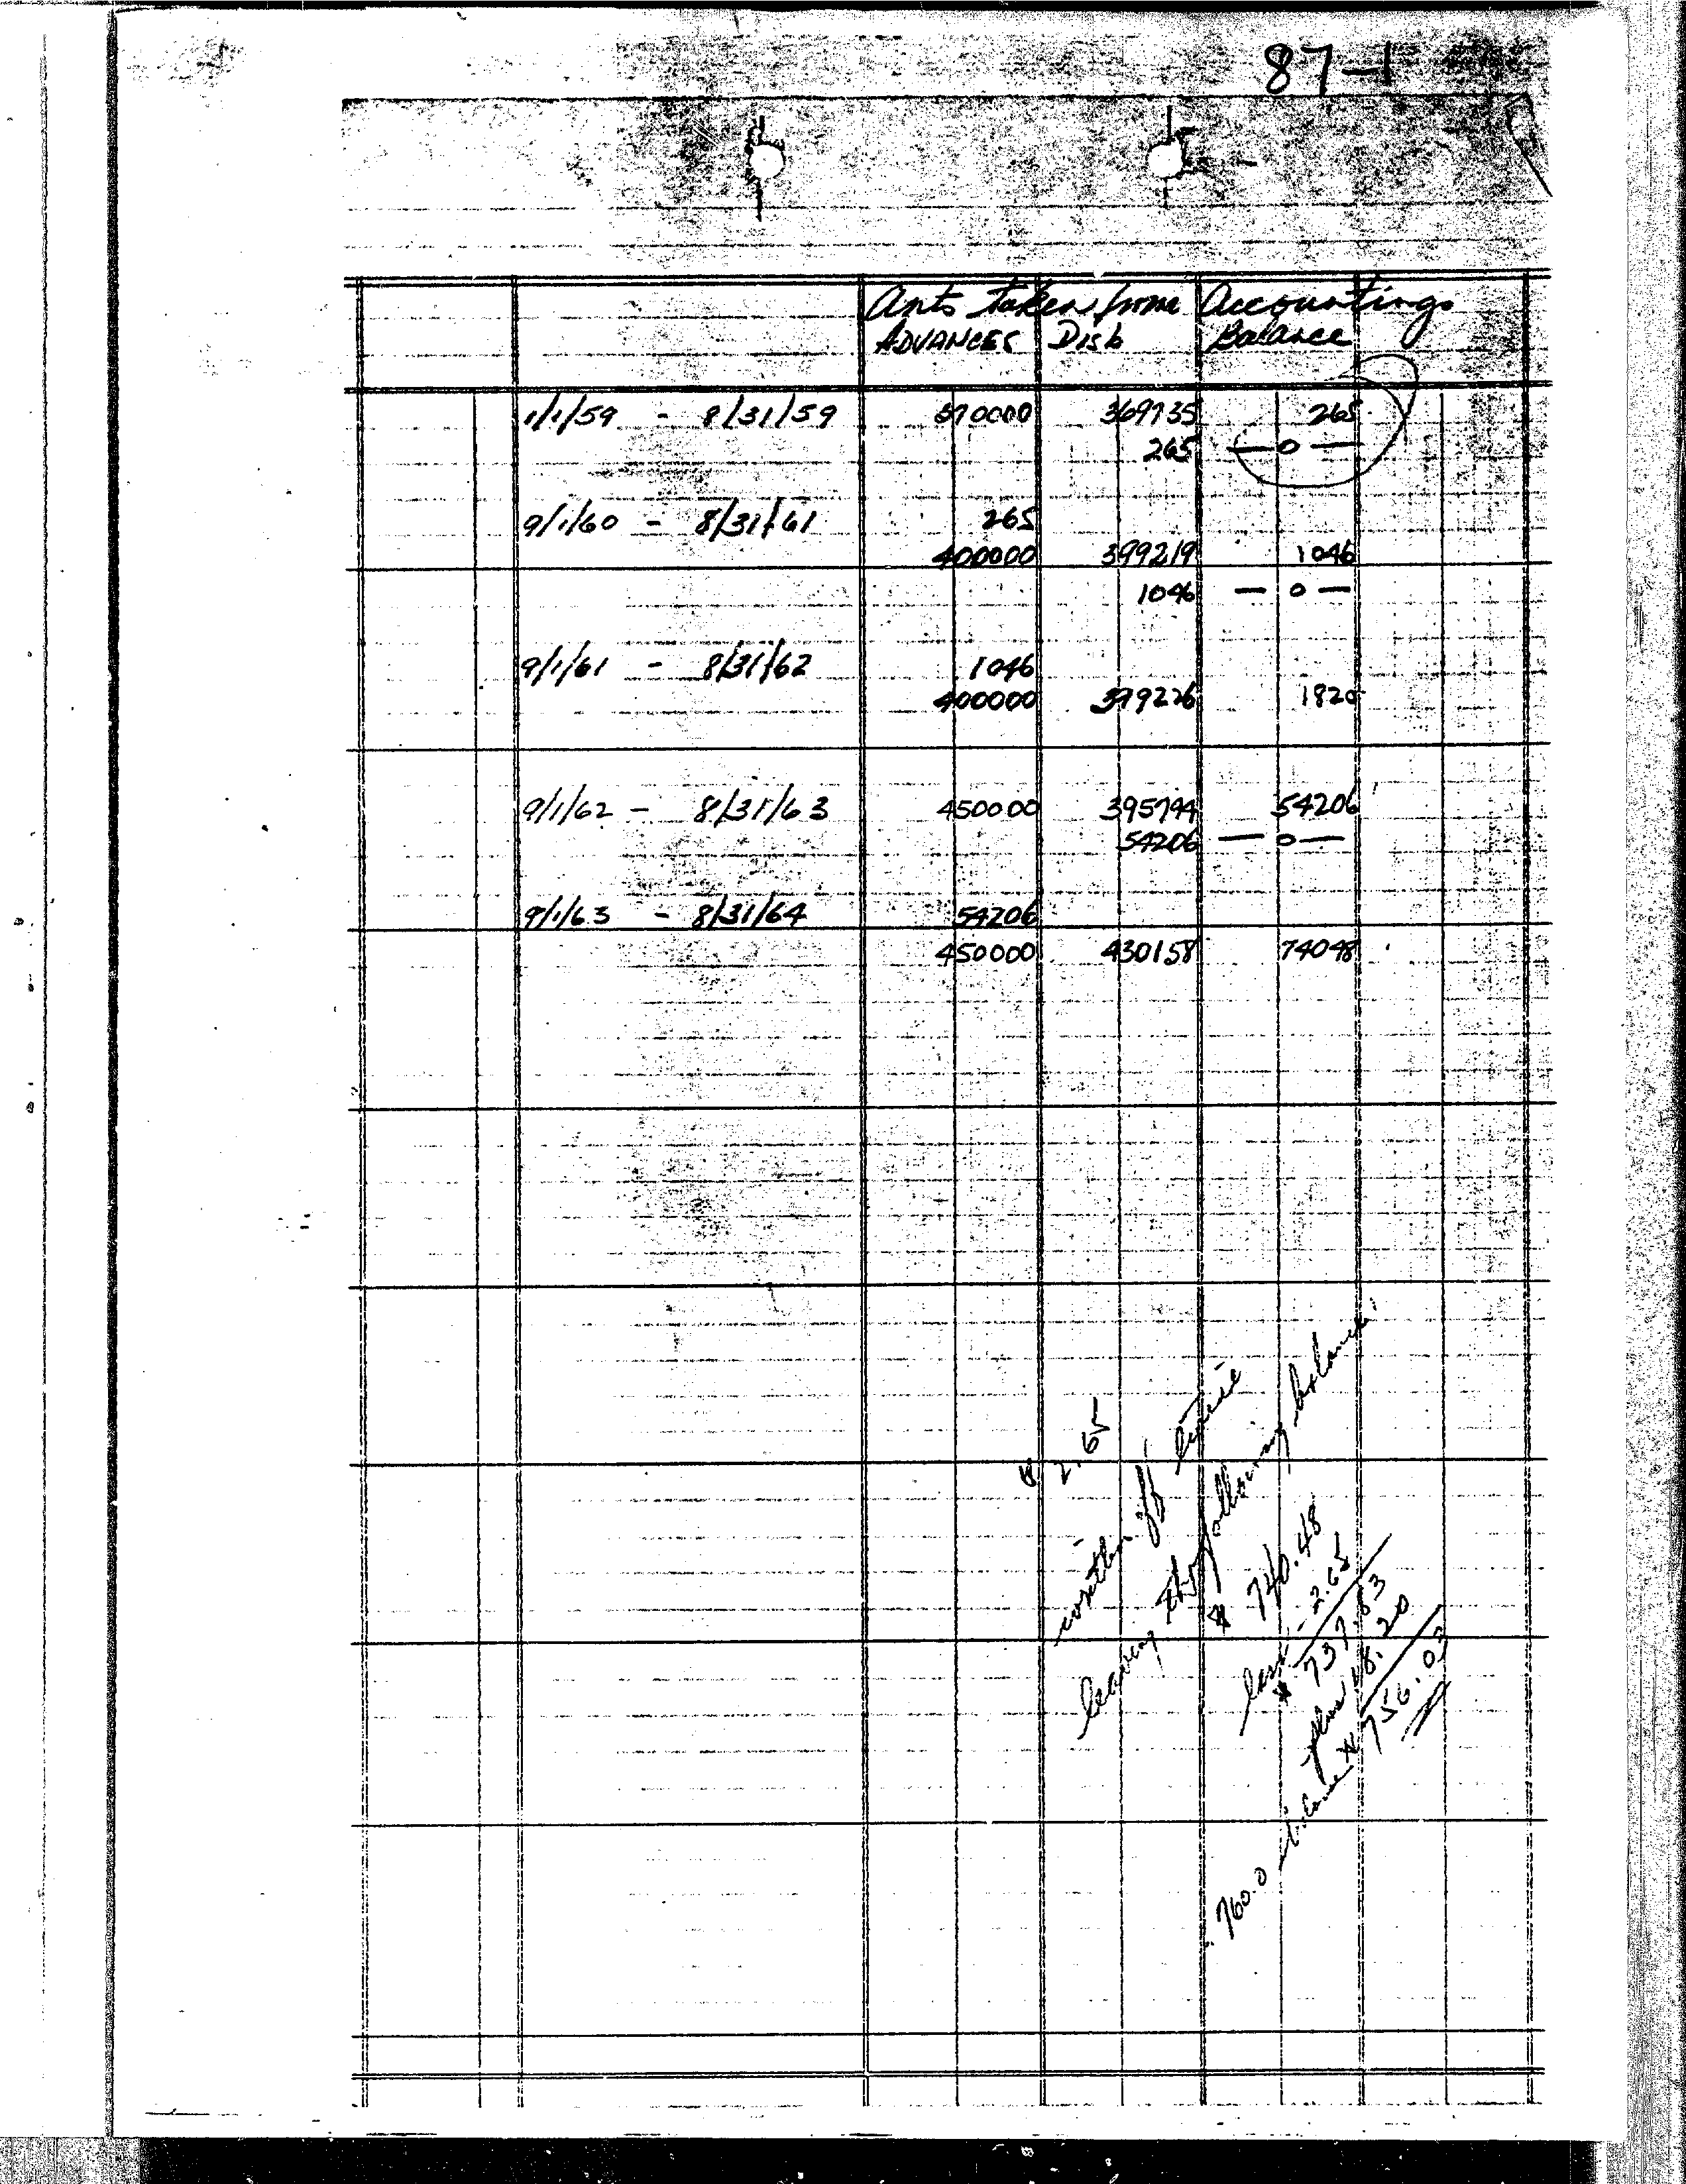 87-1
Amts taken from Accountings
ADVANCES Disb Balance
1/1/59 - 8/31/59 370000 369735 265
265 — 0 —
9/1/60 - 8/31/61 265
400000 399219 1046
1046 — 0 —
9/1/61 - 8/31/62 1046
400000 399226 1820
9/1/62 - 8/31/63 450000 395794 54206
54206 — 0 —
9/1/63 - 8/31/64 54206
450000 430158 74048
$ 2.65
written off
leaving the following balance
$ 740.48
less - 2.65
$ 737.83
plus 18.20
$ 756.03
760.0